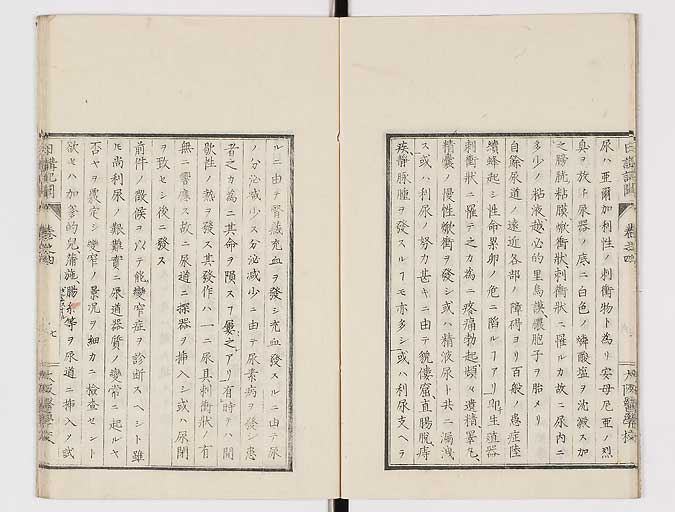 尿ハ亜爾加利性ノ刺衝物ト為リ安母尼亜ノ烈
臭ヲ放ト尿器ノ底ニ白色ノ燐酸塩ヲ沈澱ス加
之膀胱粘膜焮衝状刺衝状ニ罹ルカ故ニ尿内ニ
多少ノ粘液越必的里烏謨膿胞子ヲ胎メリ
自餘尿道ノ遠近各部ノ障碍ヨリ百般ノ患症陸
續蜂起シ性命累卵ノ危ニ陥ルアリ即生殖器
刺衝状ニ罹テ之カ為ニ疼痛勃起頻々遺精睪丸
精嚢ノ慢性焮衝ヲ發シ或ハ精液尿ト共ニ漏洩
ス或ハ利尿ノ努力甚キニ由テ鼠窟直腸脱痔
疾静脉腫ヲ發スルモ亦多シ或ハ利尿支ヘラ
日講記聞
巻之四
大阪醫學校
ルニ由テ腎藏充血ヲ發シ充血發スルニ由テ尿
ノ分泌減少ス分泌減少ニ由テ尿素病ヲ發シ患
者之カ為ニ其命ヲ隕スフ屢之アリ有時テハ間
歇性ノ熱ヲ發ス其發作ハ一ニ尿具刺衝状ノ有
無ニ響應ス故ニ尿道ニ探器ヲ挿入シ或ハ尿閉
ヲ致セシ後ニ發ス
前件ノ徴候ヲ以テ能變窄症ヲ診断スヘシト雖
モ尚利尿ノ艱難實ニ尿道器質ノ變常ニ起ルヤ
否ヤヲ嚴定シ變窄ノ景况ヲ細カニ検査セント
欲セハ加爹的兒蒲施腸糸等ヲ尿道ニ挿入ノ或
日講記聞
巻之四
七
大阪醫學校